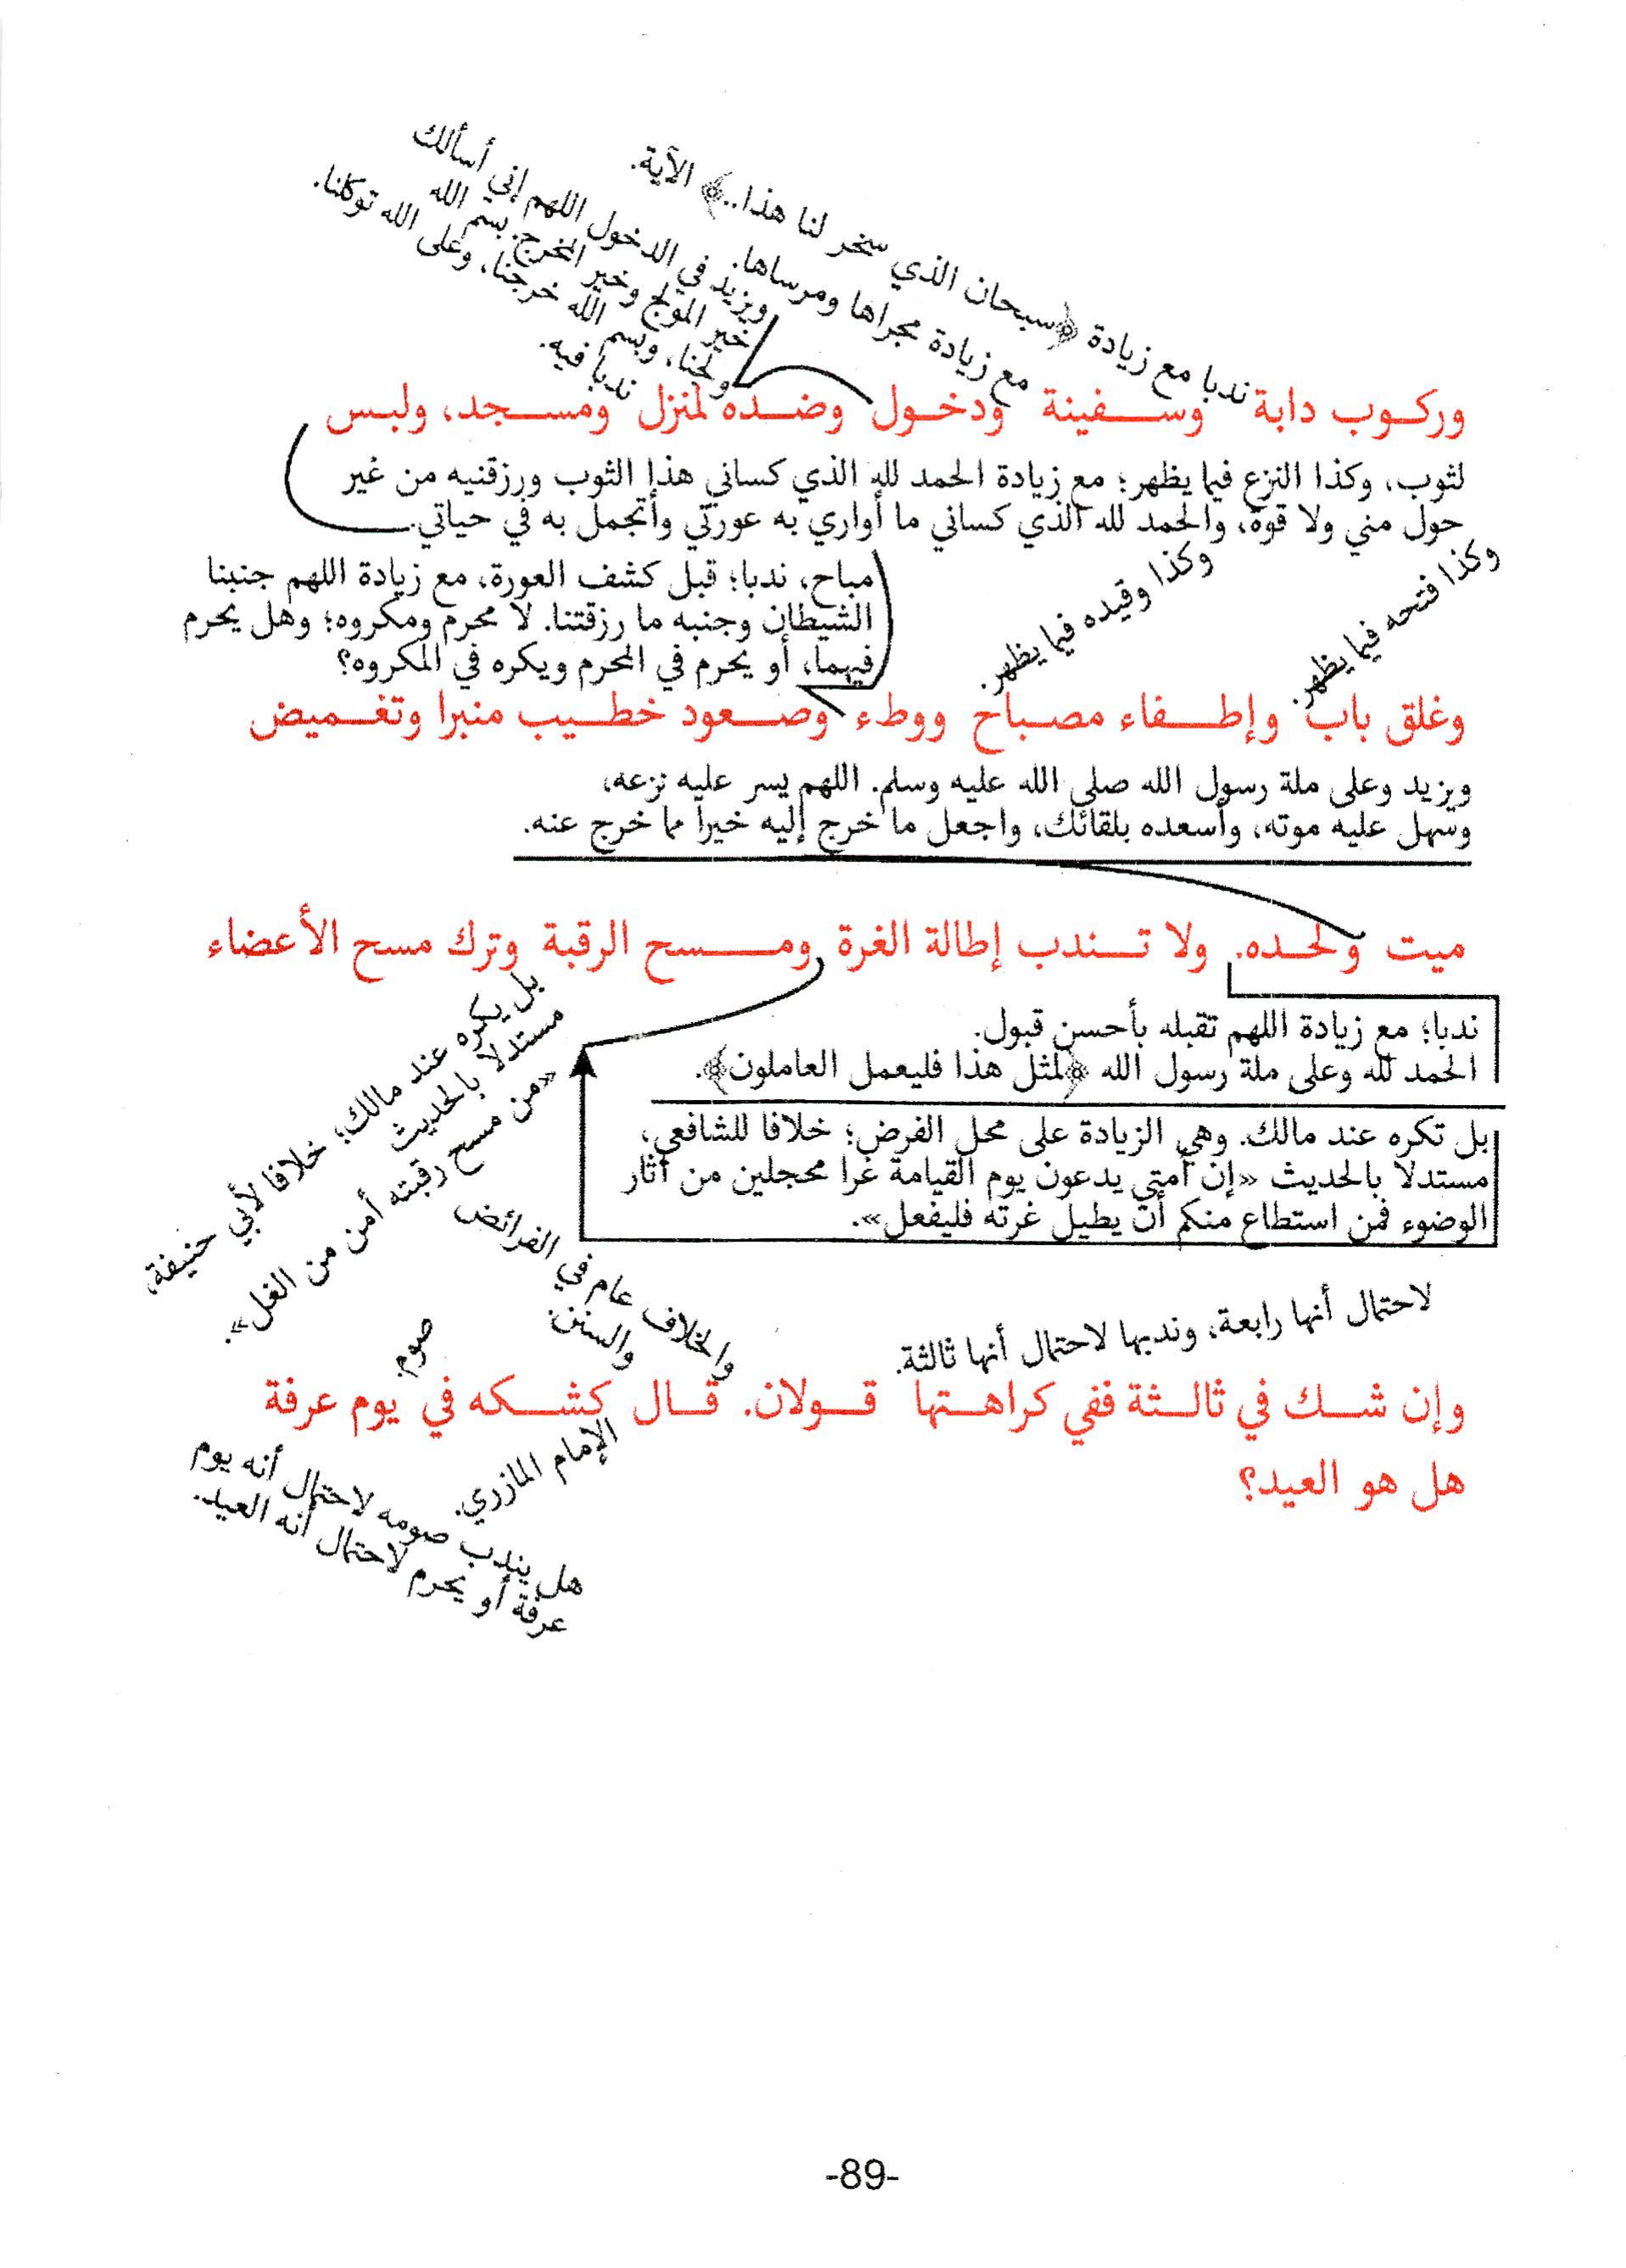 ندبا مع زيادة ﴿سبحان الذي سخر لنا هذا..﴾ الآية.
مع زيادة مجراها ومرساها.
ويزيد في الدخول اللهم إني أسألك
خير المولج وخير المخرج. بسم الله
ولجنا، وبسم الله خرجنا، وعلى الله توكلنا.
ندبا فيه.
وركوب دابة وسفينة ودخول وضده لمنزل ومسجد، ولبس
لثوب، وكذا النزع فيما يظهر؛ مع زيادة الحمد لله الذي كساني هذا الثوب ورزقنيه من غير
حول مني ولا قوة، والحمد لله الذي كساني ما أواري به عورتي وأتجمل به في حياتي.
وكذا فتحه فيما يظهر.
وكذا وقيده فيما يظهر.
مباح، ندبا؛ قبل كشف العورة، مع زيادة اللهم جنبنا
الشيطان وجنبه ما رزقتنا. لا محرم ومكروه؛ وهل يحرم
فيهما، أو يحرم في المحرم ويكره في المكروه؟
وغلق باب وإطفاء مصباح ووطء وصعود خطيب منبرا وتغميض
ويزيد وعلى ملة رسول الله صلى الله عليه وسلم. اللهم يسر عليه نزعه،
وسهل عليه موته، وأسعده بلقائك، واجعل ما خرج إليه خيرا مما خرج عنه.
ميت ولحده. ولا تندب إطالة الغرة ومسح الرقبة وترك مسح الأعضاء
ندبا؛ مع زيادة اللهم تقبله بأحسن قبول.
الحمد لله وعلى ملة رسول الله ﴿لمثل هذا فليعمل العاملون﴾.
بل تكره عند مالك. وهي الزيادة على محل الفرض؛ خلافا للشافعي،
مستدلا بالحديث «إن أمتي يدعون يوم القيامة غرا محجلين من آثار
الوضوء فمن استطاع منكم أن يطيل غرته فليفعل».
بل يكره عند مالك؛ خلافا لأبي حنيفة،
مستدلا بالحديث
«من مسح رقبته أمن من الغل».
لاحتمال أنها رابعة، وندبها لاحتمال أنها ثالثة.
والخلاف عام في الفرائض
والسنن.
صوم.
وإن شك في ثالثة ففي كراهتها قولان. قال كشكه في يوم عرفة
الإمام المازري.
هل هو العيد؟
هل يندب صومه لاحتمال أنه يوم
عرفة أو يحرم لاحتمال أنه العيد.
-89-